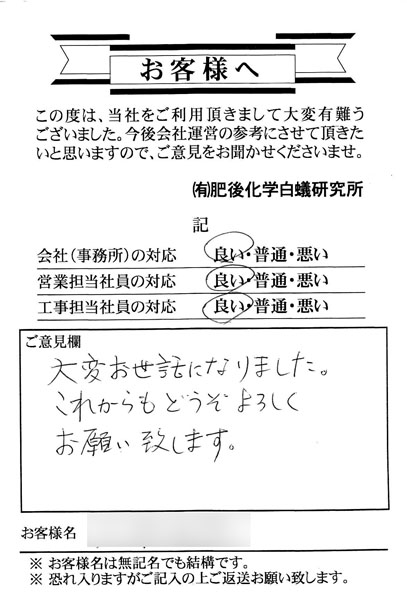 お客様へ
この度は、当社をご利用頂きまして大変有難う
ございました。今後会社運営の参考にさせて頂きた
いと思いますので、ご意見をお聞かせくださいませ。
㈲肥後化学白蟻研究所
記
会社（事務所）の対応 良い・普通・悪い
営業担当社員の対応 良い・普通・悪い
工事担当社員の対応 良い・普通・悪い
ご意見欄
大変お世話になりました。
これからもどうぞよろしく
お願い致します。
お客様名
※ お客様名は無記名でも結構です。
※ 恐れ入りますがご記入の上ご返送お願い致します。